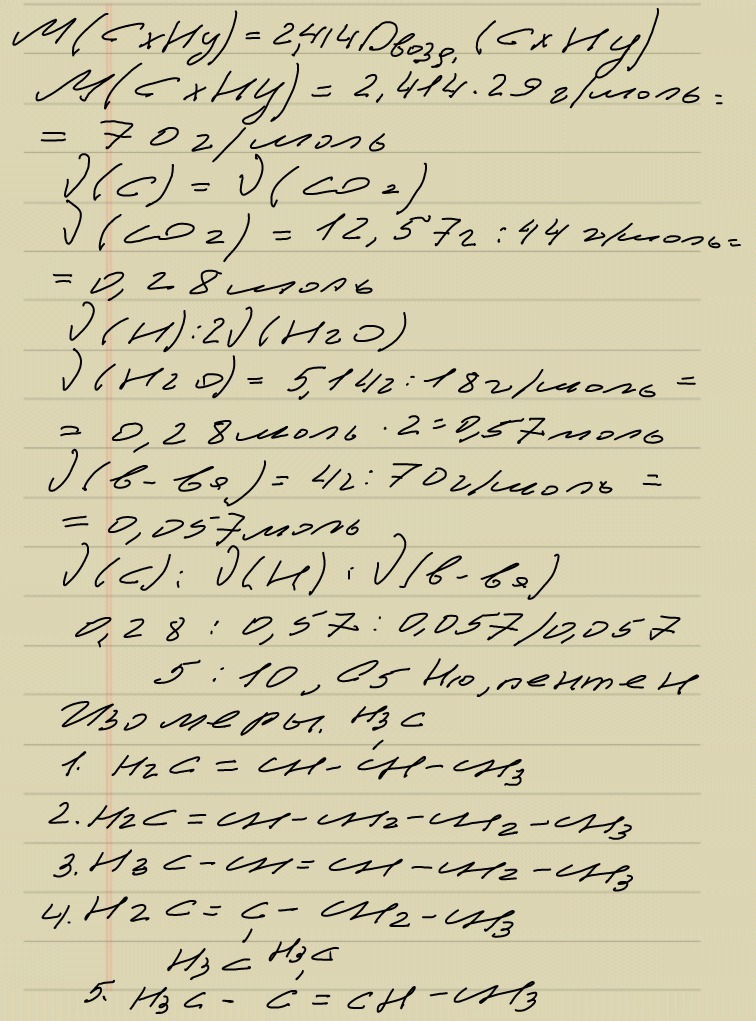 M(CxHy) = 2,414 Dвозд. (CxHy)
M(CxHy) = 2,414 · 29 г/моль =
= 70 г/моль
ν(C) = ν(CO2)
ν(CO2) = 12,57г : 44 г/моль =
= 0,28 моль
ν(H) : 2ν(H2O)
ν(H2O) = 5,14г : 18 г/моль =
= 0,28 моль · 2 = 0,57 моль
ν(в-ва) = 4г : 70 г/моль =
= 0,057 моль
ν(C) : ν(H) : ν(в-ва)
0,28 : 0,57 : 0,057 / 0,057
5 : 10, C5H10, пентен
Изомеры. H3C
1. H2C = CH - CH - CH3
2. H2C = CH - CH2 - CH2 - CH3
3. H3C - CH = CH - CH2 - CH3
4. H2C = C - CH2 - CH3
H3C H3C
5. H3C - C = CH - CH3